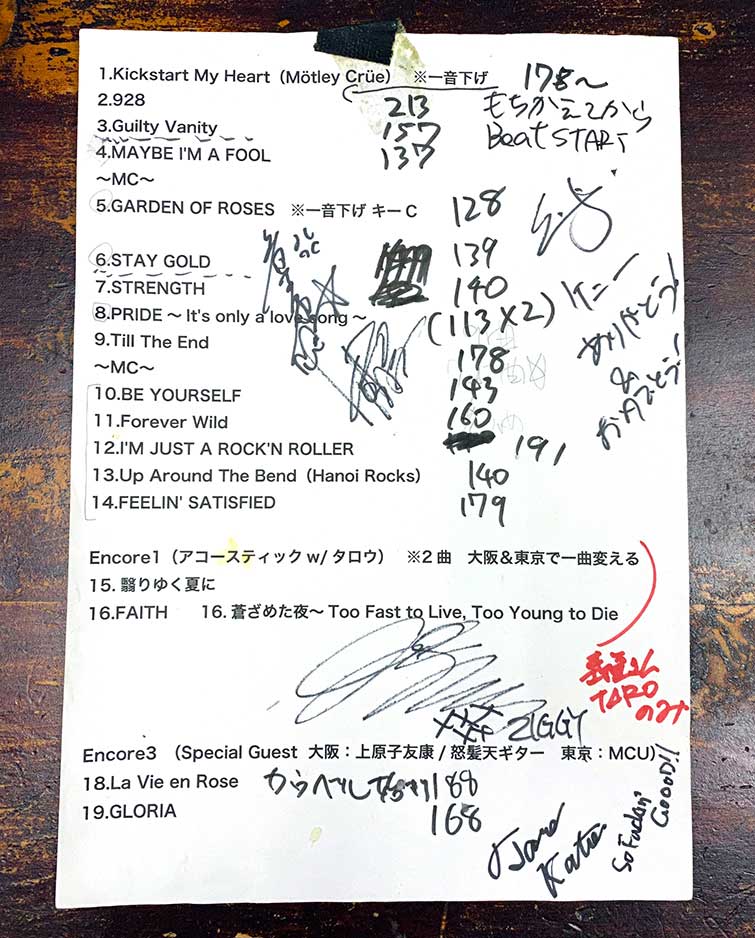 1.Kickstart My Heart（Mötley Crüe）　※一音下げ　178〜
もちかえてから
Beat START
2.928　213
3.Guilty Vanity　157
4.MAYBE I'M A FOOL　137
〜MC〜
5.GARDEN OF ROSES　※一音下げ キーC　128
6.STAY GOLD　139
7.STRENGTH　140
8.PRIDE 〜 It's only a love song 〜　(113×2)
9.Till The End　178
〜MC〜
10.BE YOURSELF　143
11.Forever Wild　160
12.I'M JUST A ROCK'N ROLLER　191
13.Up Around The Bend（Hanoi Rocks）　140
14.FEELIN' SATISFIED　179
ケニー
ありがとう!
&
おめでとう!
Encore1（アコースティック w/ タロウ）　※2 曲　大阪＆東京で一曲変える
15. 翳りゆく夏に
16.FAITH　16. 蒼ざめた夜〜 Too Fast to Live, Too Young to Die
TARO
のみ
ZIGGY
Encore3　（Special Guest　大阪：上原子友康 / 怒髪天ギター　東京：MCU）
18.La Vie en Rose　188
19.GLORIA　168
GOOOD!!